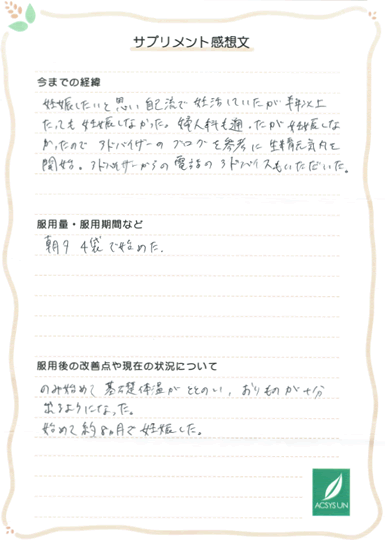 サプリメント感想文
今までの経緯
妊娠したいと思い自己流で妊活していたが半年以上
たっても妊娠しなかった。婦人科も通ったが妊娠しな
かったのでアドバイザーのブログを参考に生育元気内を
開始。アドバイザーからの電話のアドバイスもいただいた。
服用量・服用期間など
朝夕 4袋で始めた.
服用後の改善点や現在の状況について
のみ始めて基礎体温がととのい、おりものが十分
出るようになった。
始めて約8ヵ月で妊娠した。
ACSYSUN